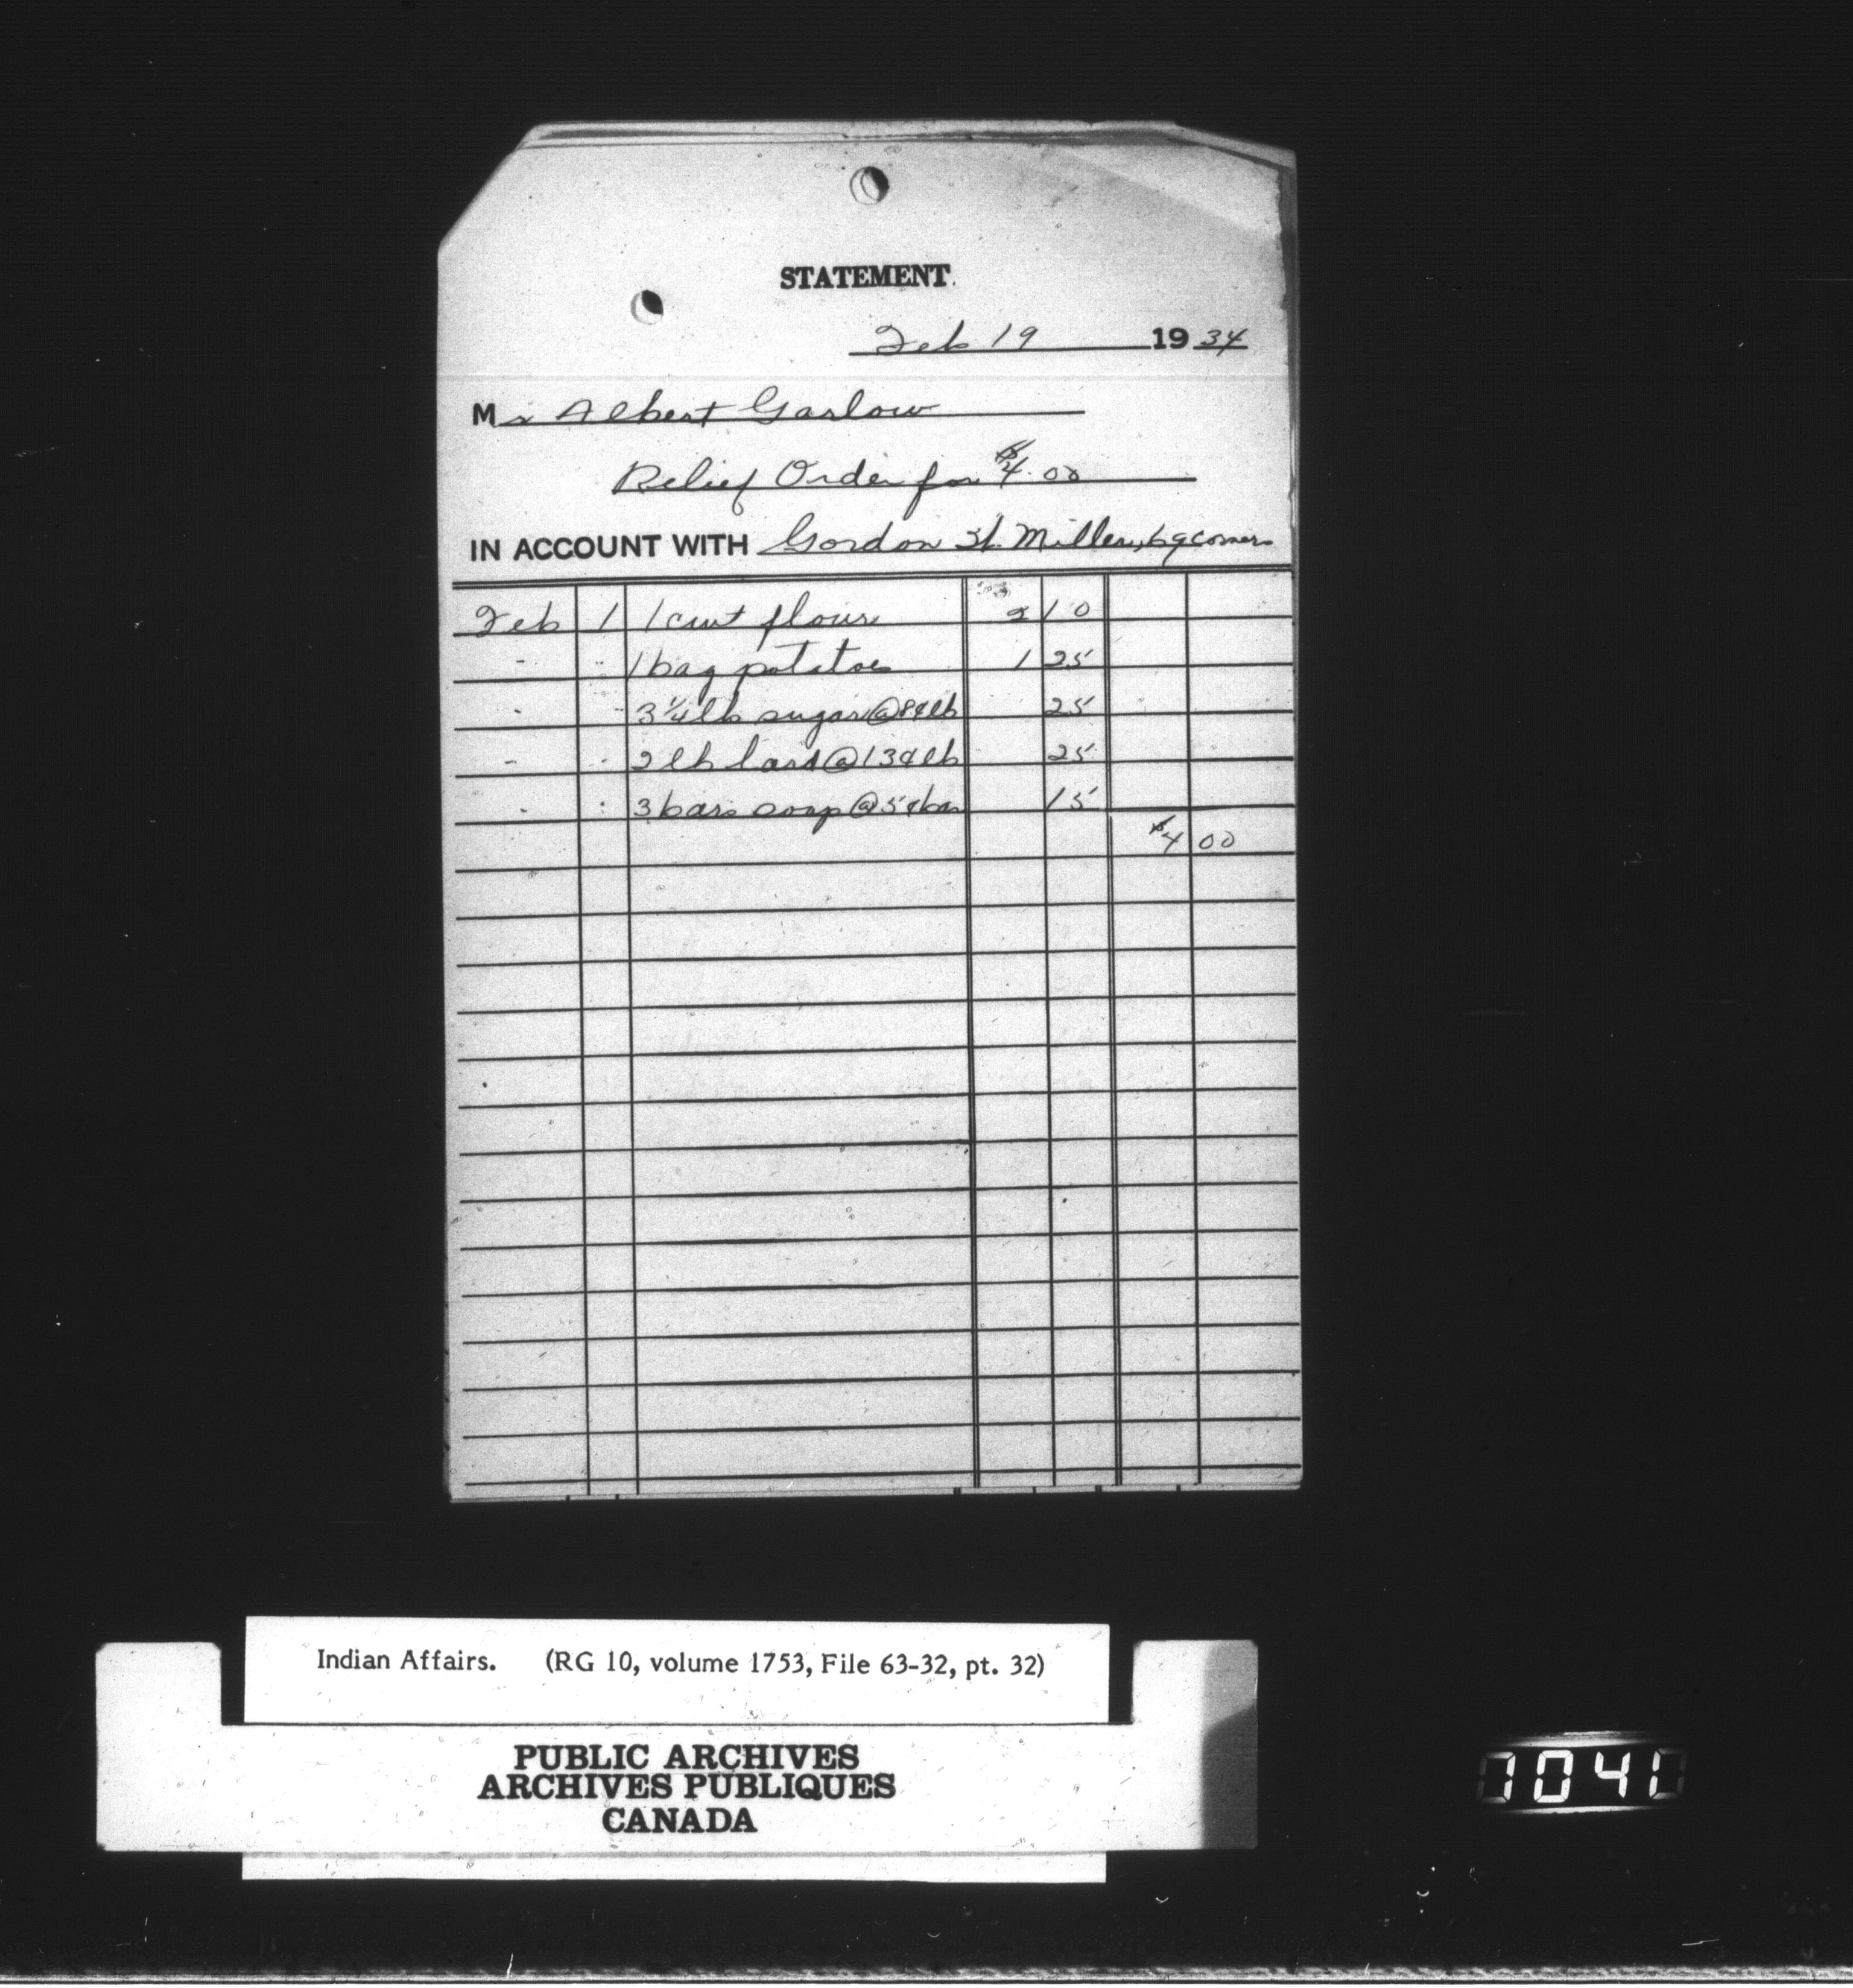 STATEMENT.
Feb 19 1934
Mr Albert Garlow
Relief Order for $4.00
IN ACCOUNT WITH Gordon H. Miller, 69 corners
Feb 1 1 cwt flour 2 10
- " 1 bag potatoes 1 25
- " 3 1/4 lb sugar @ 8¢ lb 25
- " 2 lb lard @ 13¢ lb 25
- " 3 bars soap @ 5¢ bar 15
$4 00
Indian Affairs. (RG 10, volume 1753, File 63-32, pt. 32)
PUBLIC ARCHIVES
ARCHIVES PUBLIQUES
CANADA
1041